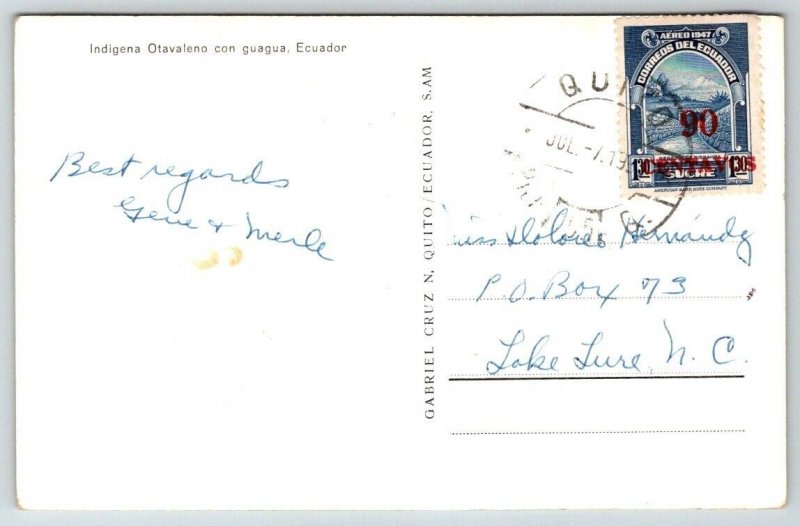 Indigena Otavaleno con guagua, Ecuador
Best regards
Gene & Merle
GABRIEL CRUZ N, QUITO/ECUADOR, S.AM
AÉREO 1947
CORREOS DEL ECUADOR
90
CENTAVOS
1.30 1.30
SUCRE
AMERICAN BANK NOTE COMPANY
QUITO
JUL -7.19
Miss Dolores Hernández
P.O. Box 73
Lake Lure, N. C.